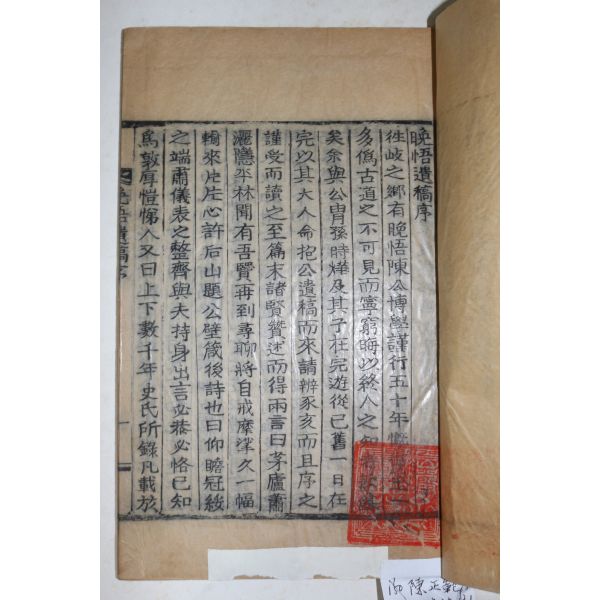 晩悟遺稿序
往岐之鄉有晩悟陳公博學謹行五十年
多僞古道之不可見而寧窮晦以終人之知
矣余與公胄孫時燁及其子在完遊從已舊一日在
完以其大人命抱公遺稿而來請辨豕亥而且序之
謹受而讀之至篇末諸賢贊述而得兩言曰茅廬蕭
灑隱平林聞有吾賢再到尋聊將自戒摩挲久一幅
輸來片片心許后山題公壁箴後詩也曰仰瞻冠綏
之端肅儀表之整齊與夫持身出言必恭必恪已知
爲敦厚愷悌人又曰上下數千年史氏所錄凡載於
晩悟遺稿序
一
陳正